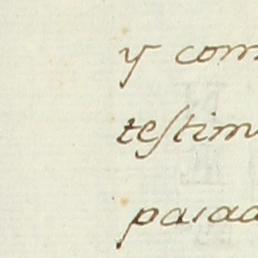 y com
testim
pasad